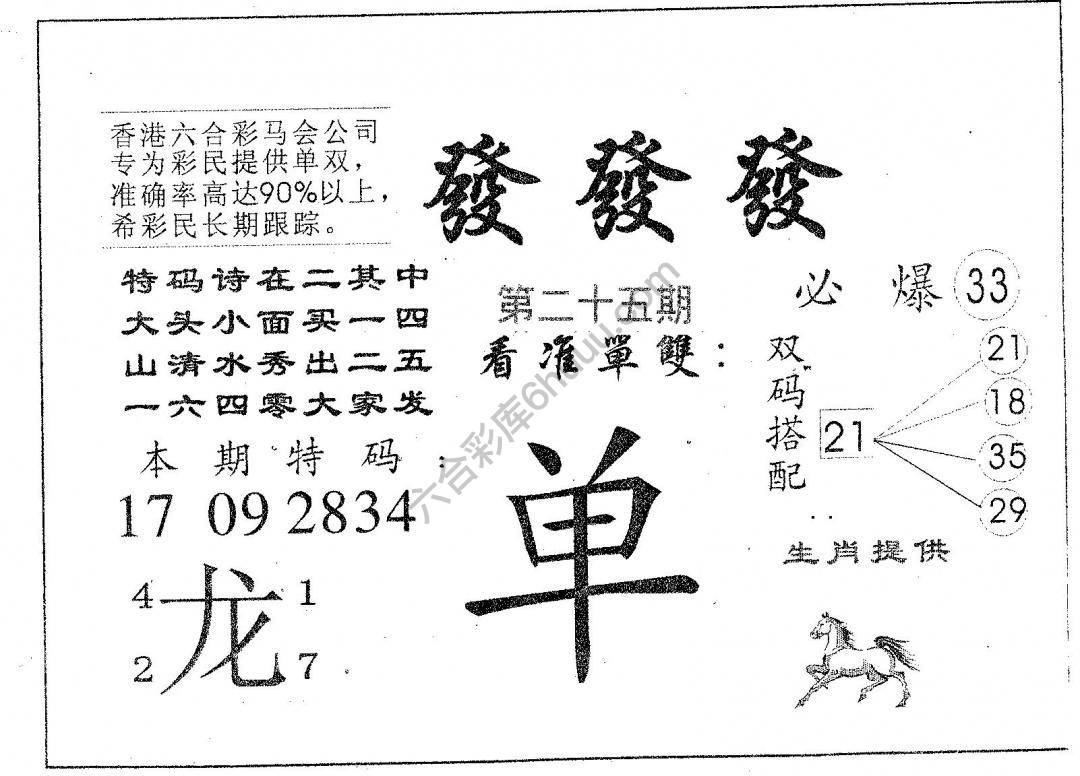 香港六合彩马会公司
专为彩民提供单双，
准确率高达90%以上，
希彩民长期跟踪。
發 發 發
特码诗在二其中
大头小面买一四
山清水秀出二五
一六四零大家发
第二十五期
看准單雙：
必 爆 33
双码搭配
21
21
18
35
29
本期特码：
17 09 2834
单
4 龙 1
2 7
生肖提供
六合彩库6huuu.com